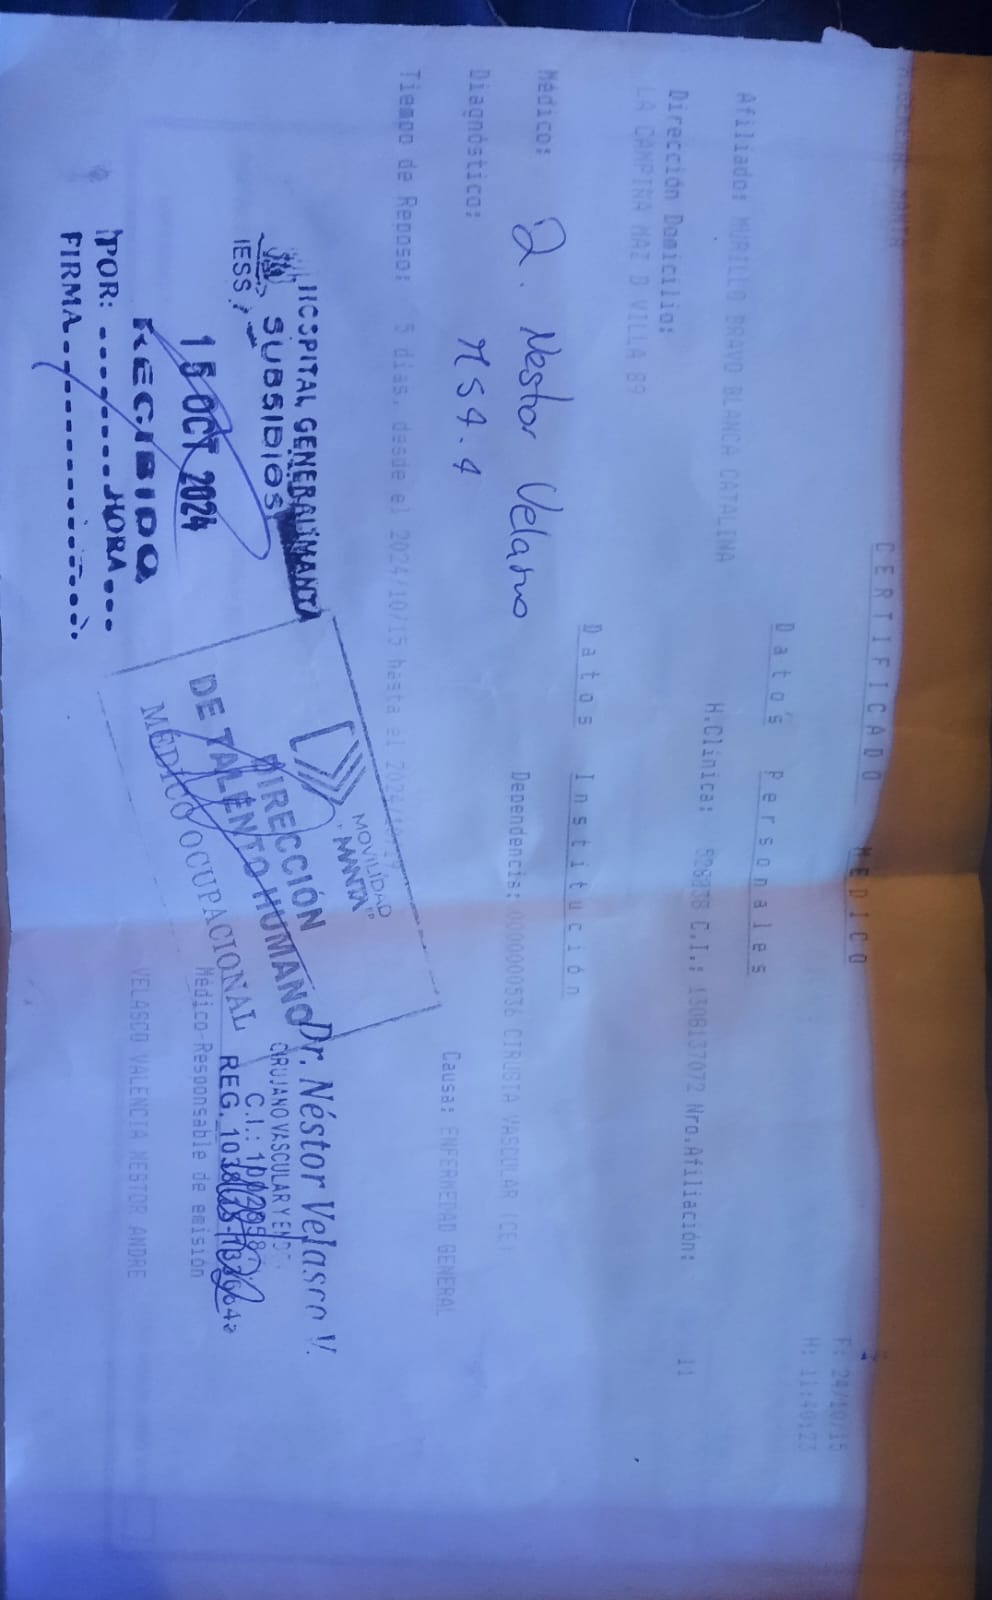 F: 24/10/15
H: 11:40:23
CERTIFICADO MEDICO
Datos Personales
Afiliado: MURILLO BRAVO BLANCA CATALINA
H.Clínica: C.I.: 1308137072 Nro.Afiliación: 11
Dirección Domicilio:
LA CAMPIÑA MAZ D VILLA 89
Datos Institución
Médico: Nestor Velasco
Dependencia: 0000000536 CIRUGIA VASCULAR (CE)
Diagnóstico: M54.4
Causa: ENFERMEDAD GENERAL
Tiempo de Reposo: 5 días, desde el 2024/10/15 hasta el 2024/10/19
HOSPITAL GENERAL MANTA
SUBSIDIOS
IESS
15 OCT 2024
RECIBIDO
POR: HORA
FIRMA
MOVILIDAD
MANTA EP
DIRECCIÓN
DE TALENTO HUMANO
MÉDICO OCUPACIONAL
Dr. Néstor Velasco V.
CIRUJANO VASCULAR Y ENDO.
C.I.:
REG.
Médico-Responsable de emisión
VELASCO VALENCIA NESTOR ANDRE